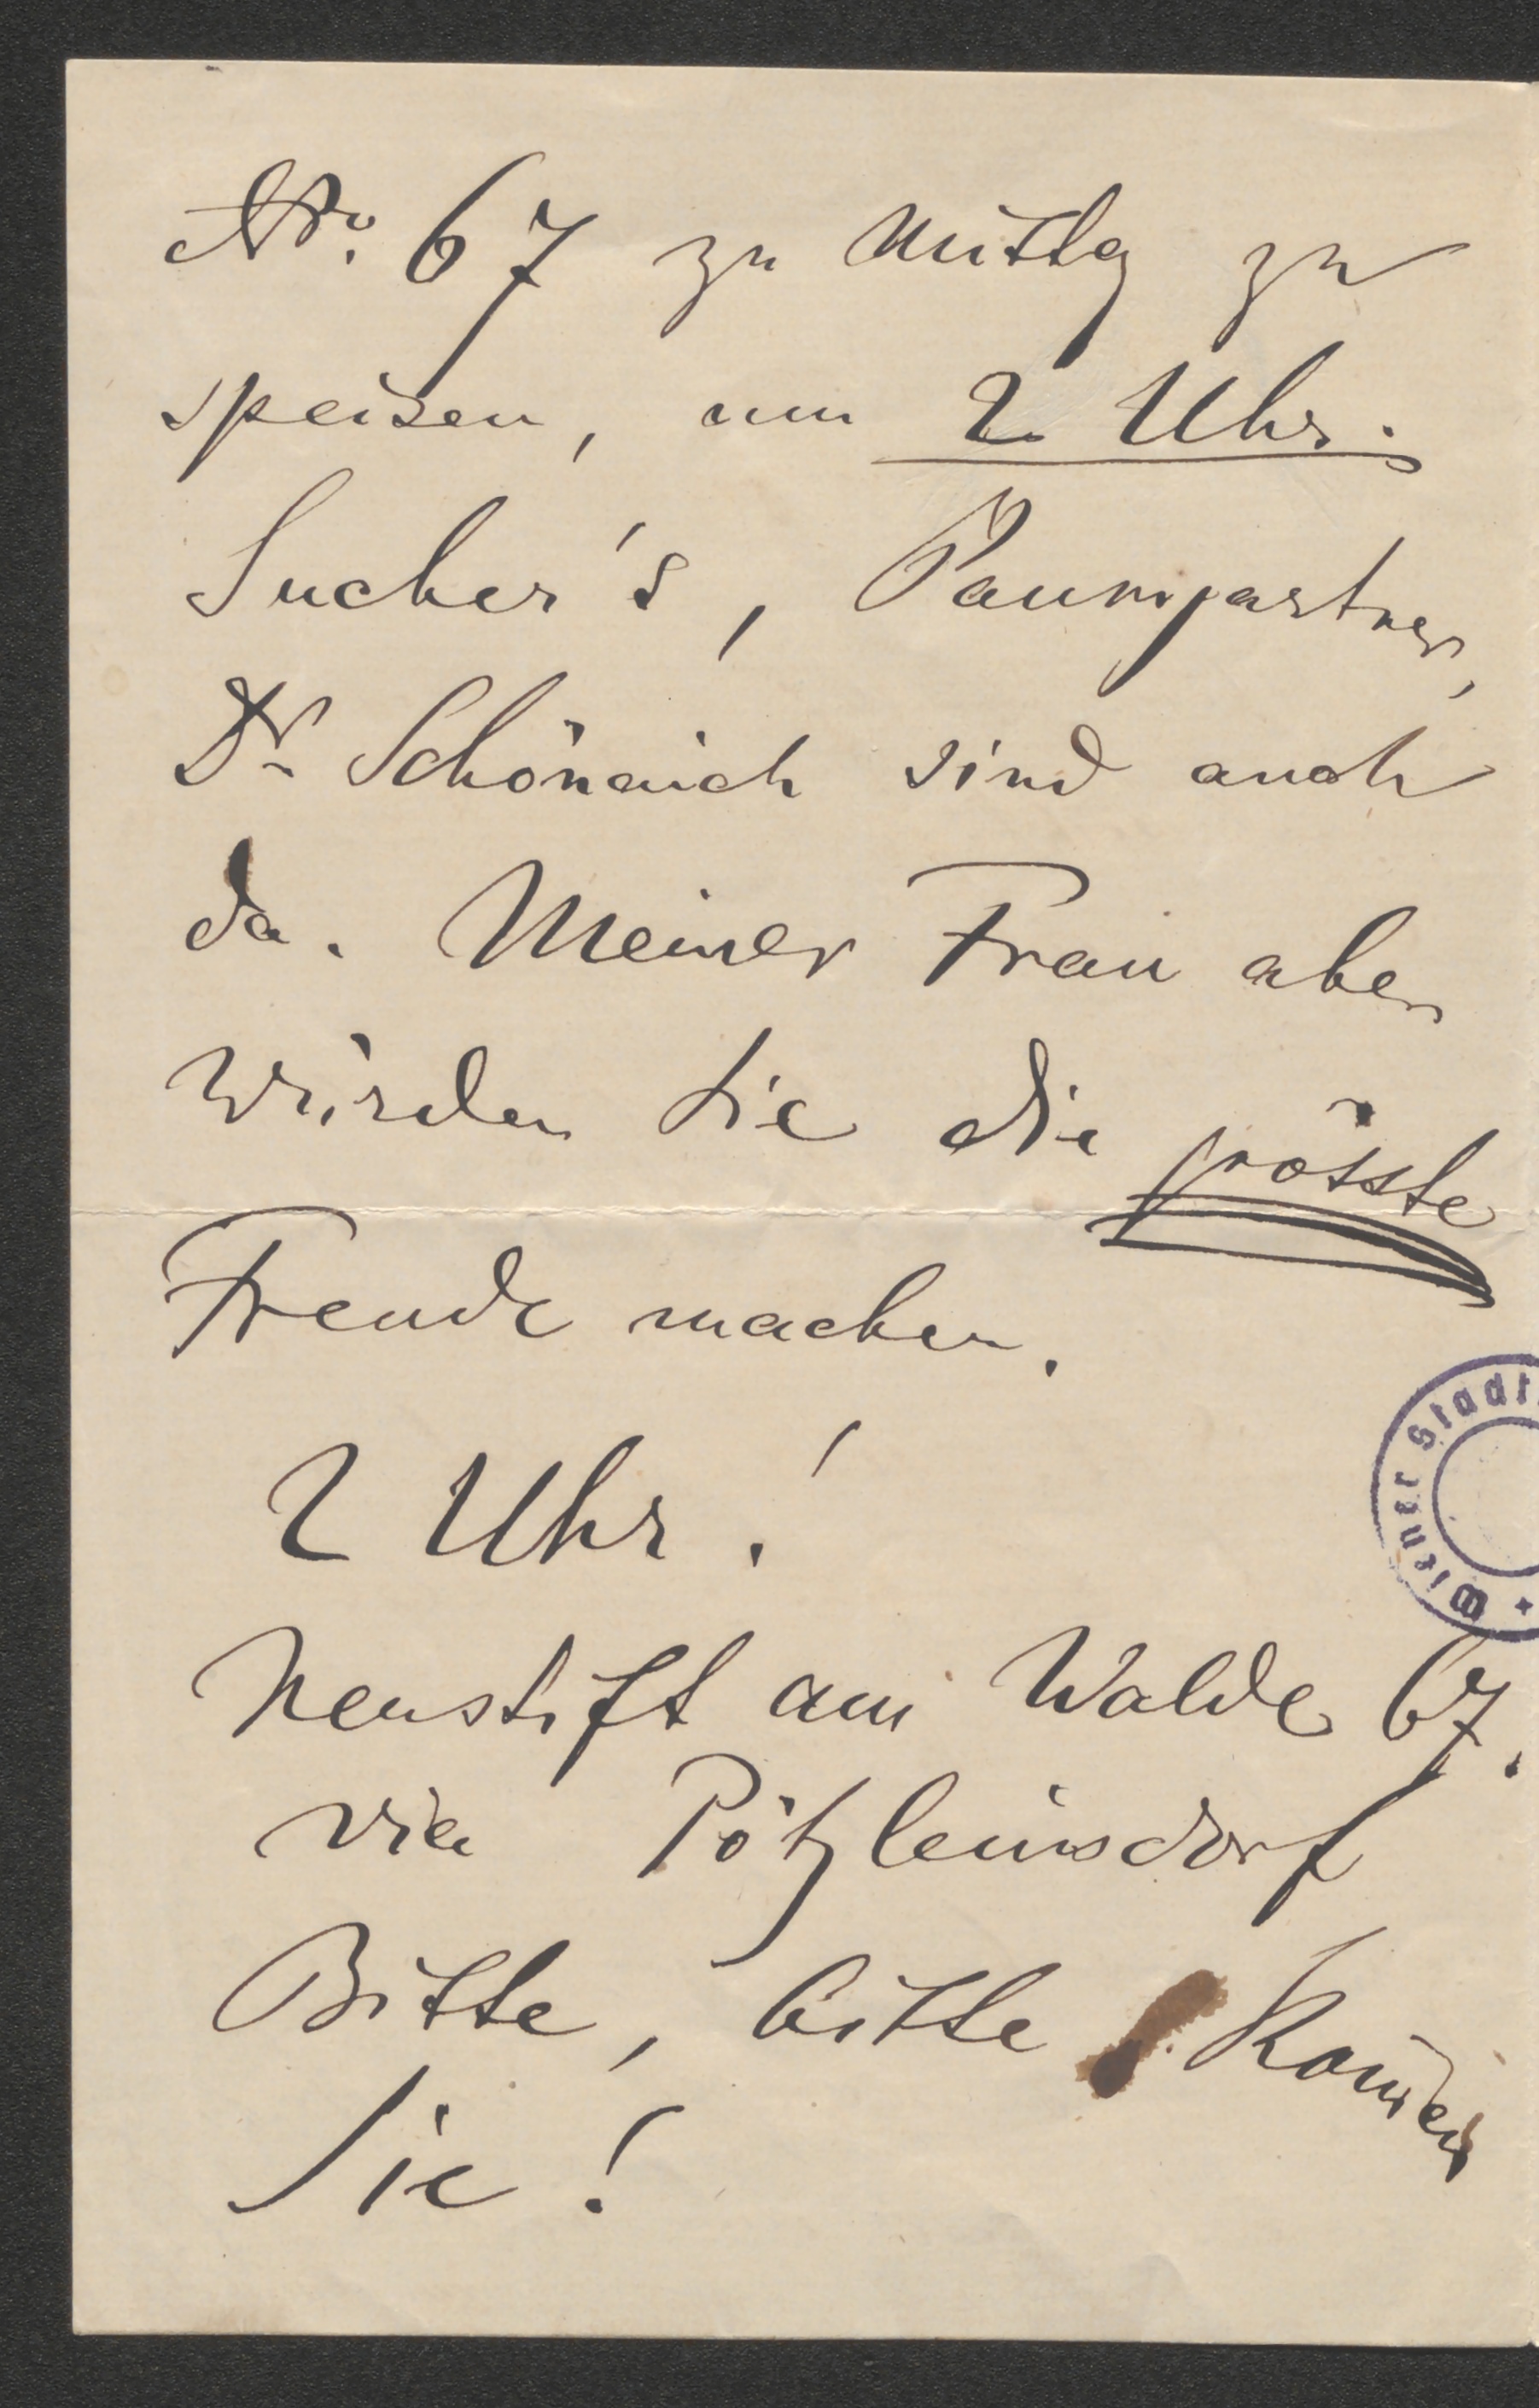 No. 67 zu Mittg zu
speisen, um 2 Uhr.
Sucher's, Paumgartner,
Dr Schönaich sind auch
da. Meiner Frau aber
würden Sie die grösste
Freude machen.
2 Uhr!
Neustift am Walde 67.
via Pötzleinsdorf
Bitte, bitte! Kom̄en
Sie!
Wiener Stadt